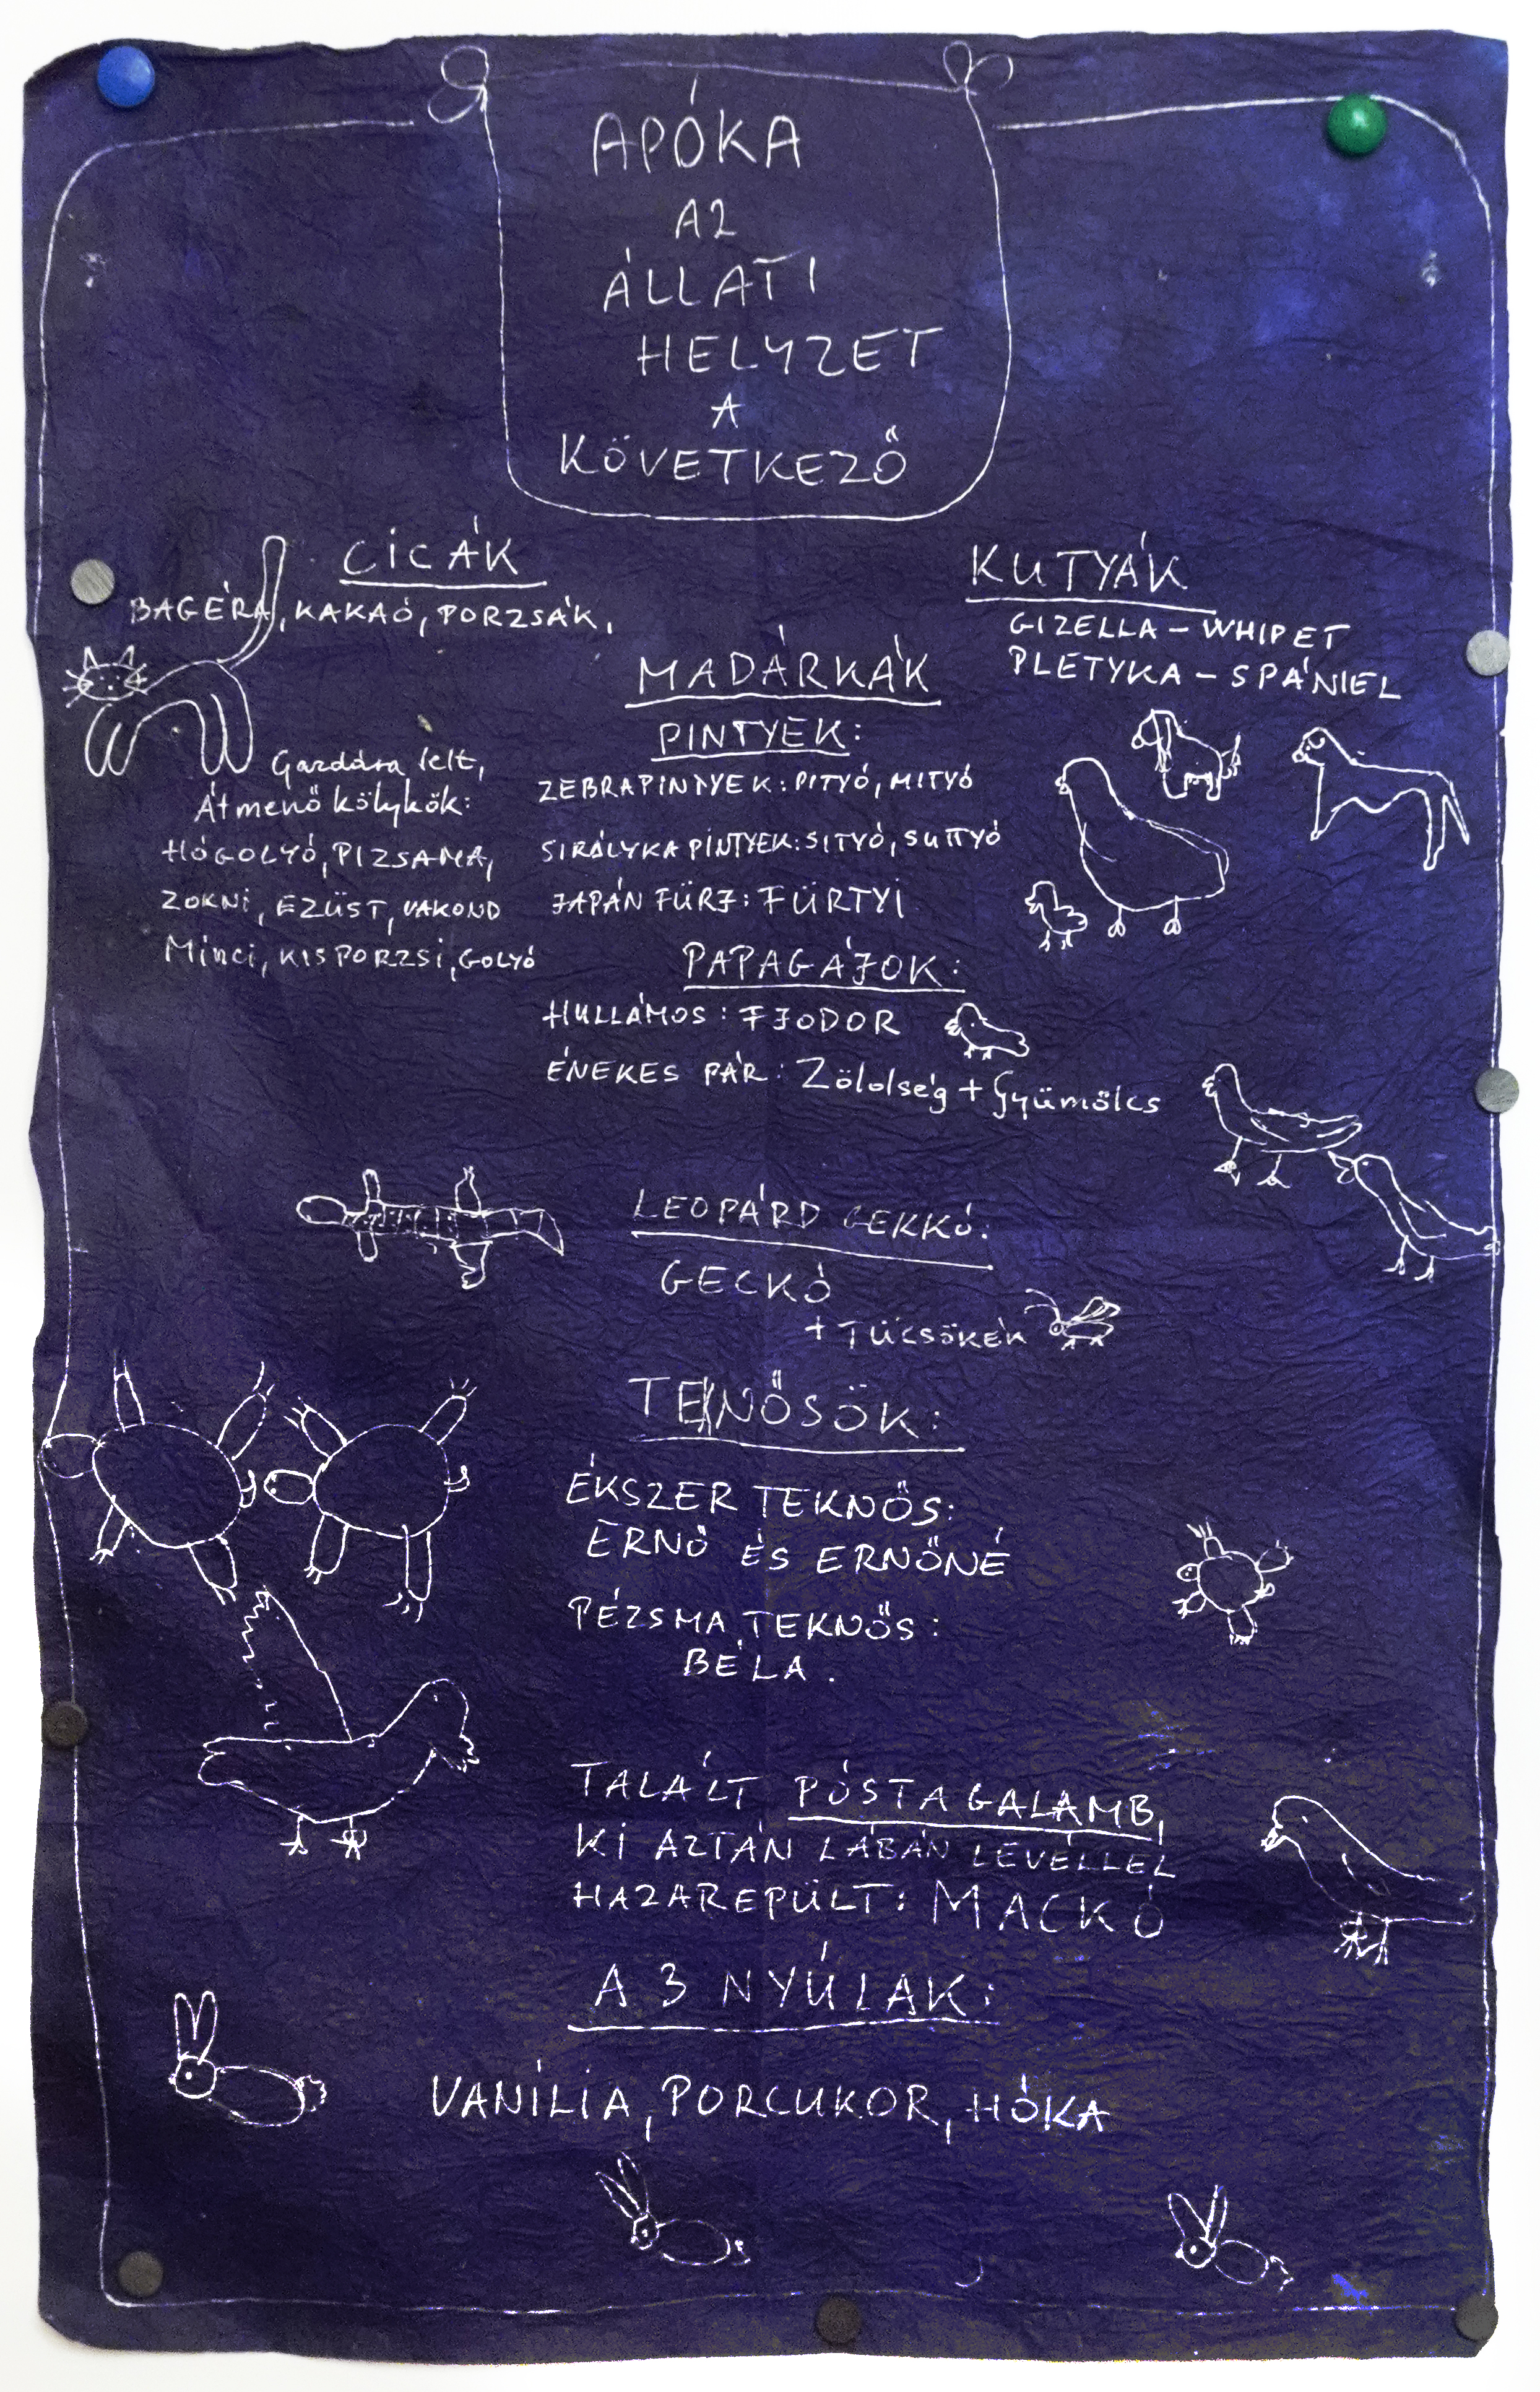 APÓKA
AZ
ÁLLATI
HELYZET
A
KÖVETKEZŐ
CICÁK
BAGÉRA, KAKAÓ, PORZSÁK,
Gazdára lelt,
Átmenő kölykök:
HÓGOLYÓ, PIZSAMA,
ZOKNI, EZÜST, VAKOND
Minci, KISPORZSI, GOLYÓ
KUTYÁK
GIZELLA – WHIPET
PLETYKA – SPÁNIEL
MADÁRKÁK
PINTYEK:
ZEBRAPINNYEK: PITYÓ, MITYÓ
SIRÁLYKA PINTYEK: SITYÓ, SUTTYÓ
JAPÁN FÜRJ: FÜRTYI
PAPAGÁJOK:
HULLÁMOS: FJODOR
ÉNEKES PÁR: Zöldség + Gyümölcs
LEOPÁRD GEKKÓ:
GECKÓ
+ TÜCSÖKEK
TEKNŐSÖK:
ÉKSZER TEKNŐS:
ERNŐ ÉS ERNŐNÉ
PÉZSMA TEKNŐS:
BÉLA.
TALÁLT PÓSTAGALAMB,
KI AZTÁN LÁBÁN LEVÉLLEL
HAZAREPÜLT: MACKÓ
A 3 NYÚLAK:
VANÍLIA, PORCUKOR, HÓKA